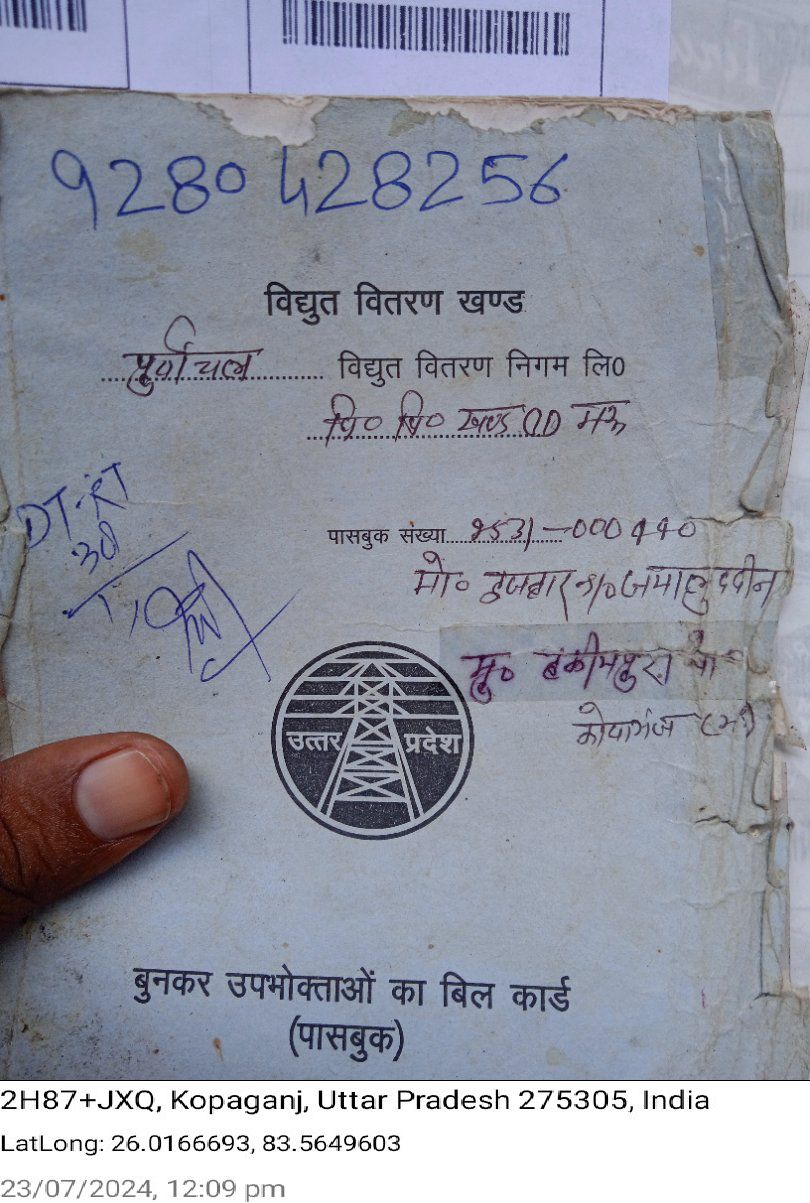 9280428256
विद्युत वितरण खण्ड
पुर्वांचल विद्युत वितरण निगम लि०
वि० वि० खण्ड मऊ
DT-RT
30
पासबुक संख्या 2531-000440
मो० s/o जमालुददीन
मु०
कोपागंज (मऊ)
उत्तर प्रदेश
बुनकर उपभोक्ताओं का बिल कार्ड
(पासबुक)
2H87+JXQ, Kopaganj, Uttar Pradesh 275305, India
LatLong: 26.0166693, 83.5649603
23/07/2024, 12:09 pm